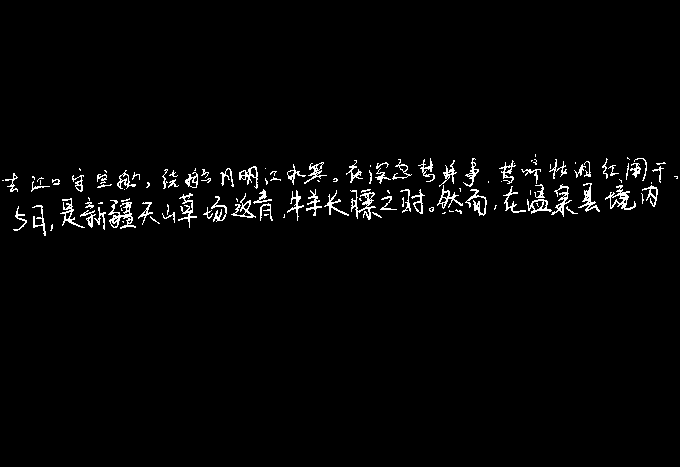 去江口守空船，绕船月明江水寒。夜深忽梦少年事，梦啼妆泪红阑干。
5月，是新疆天山草场返青，牛羊长膘之时。然而，在温泉县境内